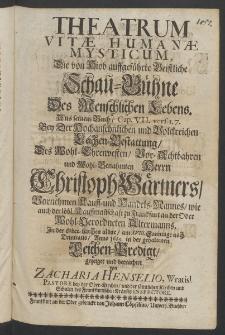 THEATRUM
VITÆ HUMANÆ
MYSTICUM,
Die von Hiob auffgeführte Geistliche
Schau-Bühne
Des Menschlichen Lebens.
Aus seinem Buch/ Cap. VII.
Bey Der Hochansehnlichen und Volckreichen
Leichen-Bestattung/
Des Wohl-Ehrenvesten/ Vor-Achtbahren
und Wohl-Benahmten Herrn
Christoph Gärtners/
Vornehmen Kauff- und Handels-Mannes/ wie
auch der löbl. Kauffmannschafft zu Franckfurt an der Oder
Wohl-Verordneten Altermanns,
In der Ober-Kirchen allda/ am XVII. Sonntag nach
Trinitatis, Anno
Leichen-Predigt/
von
ZACHARIA HENSELIO, Wratisl.
PASTORE bey der Ober-Kirchen/ und der
Schulen
Franckfurt an der Oder gedruckt von Johann